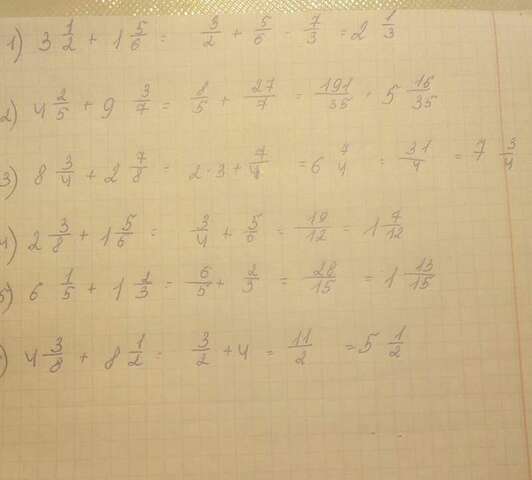 1) 3 1/2 + 1 5/6 = 3/2 + 5/6 = 7/3 = 2 1/3
2) 4 2/5 + 9 3/7 = 8/5 + 27/7 = 191/35 = 5 16/35
3) 8 3/4 + 2 7/8 = 2·3 + 7/4 = 6 7/4 = 31/4 = 7 3/4
4) 2 3/8 + 1 5/6 = 3/4 + 5/6 = 19/12 = 1 7/12
5) 6 1/5 + 1 2/3 = 6/5 + 2/3 = 28/15 = 1 13/15
) 4 3/8 + 8 1/2 = 3/2 + 4 = 11/2 = 5 1/2